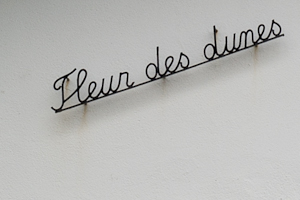 Fleur des dunes